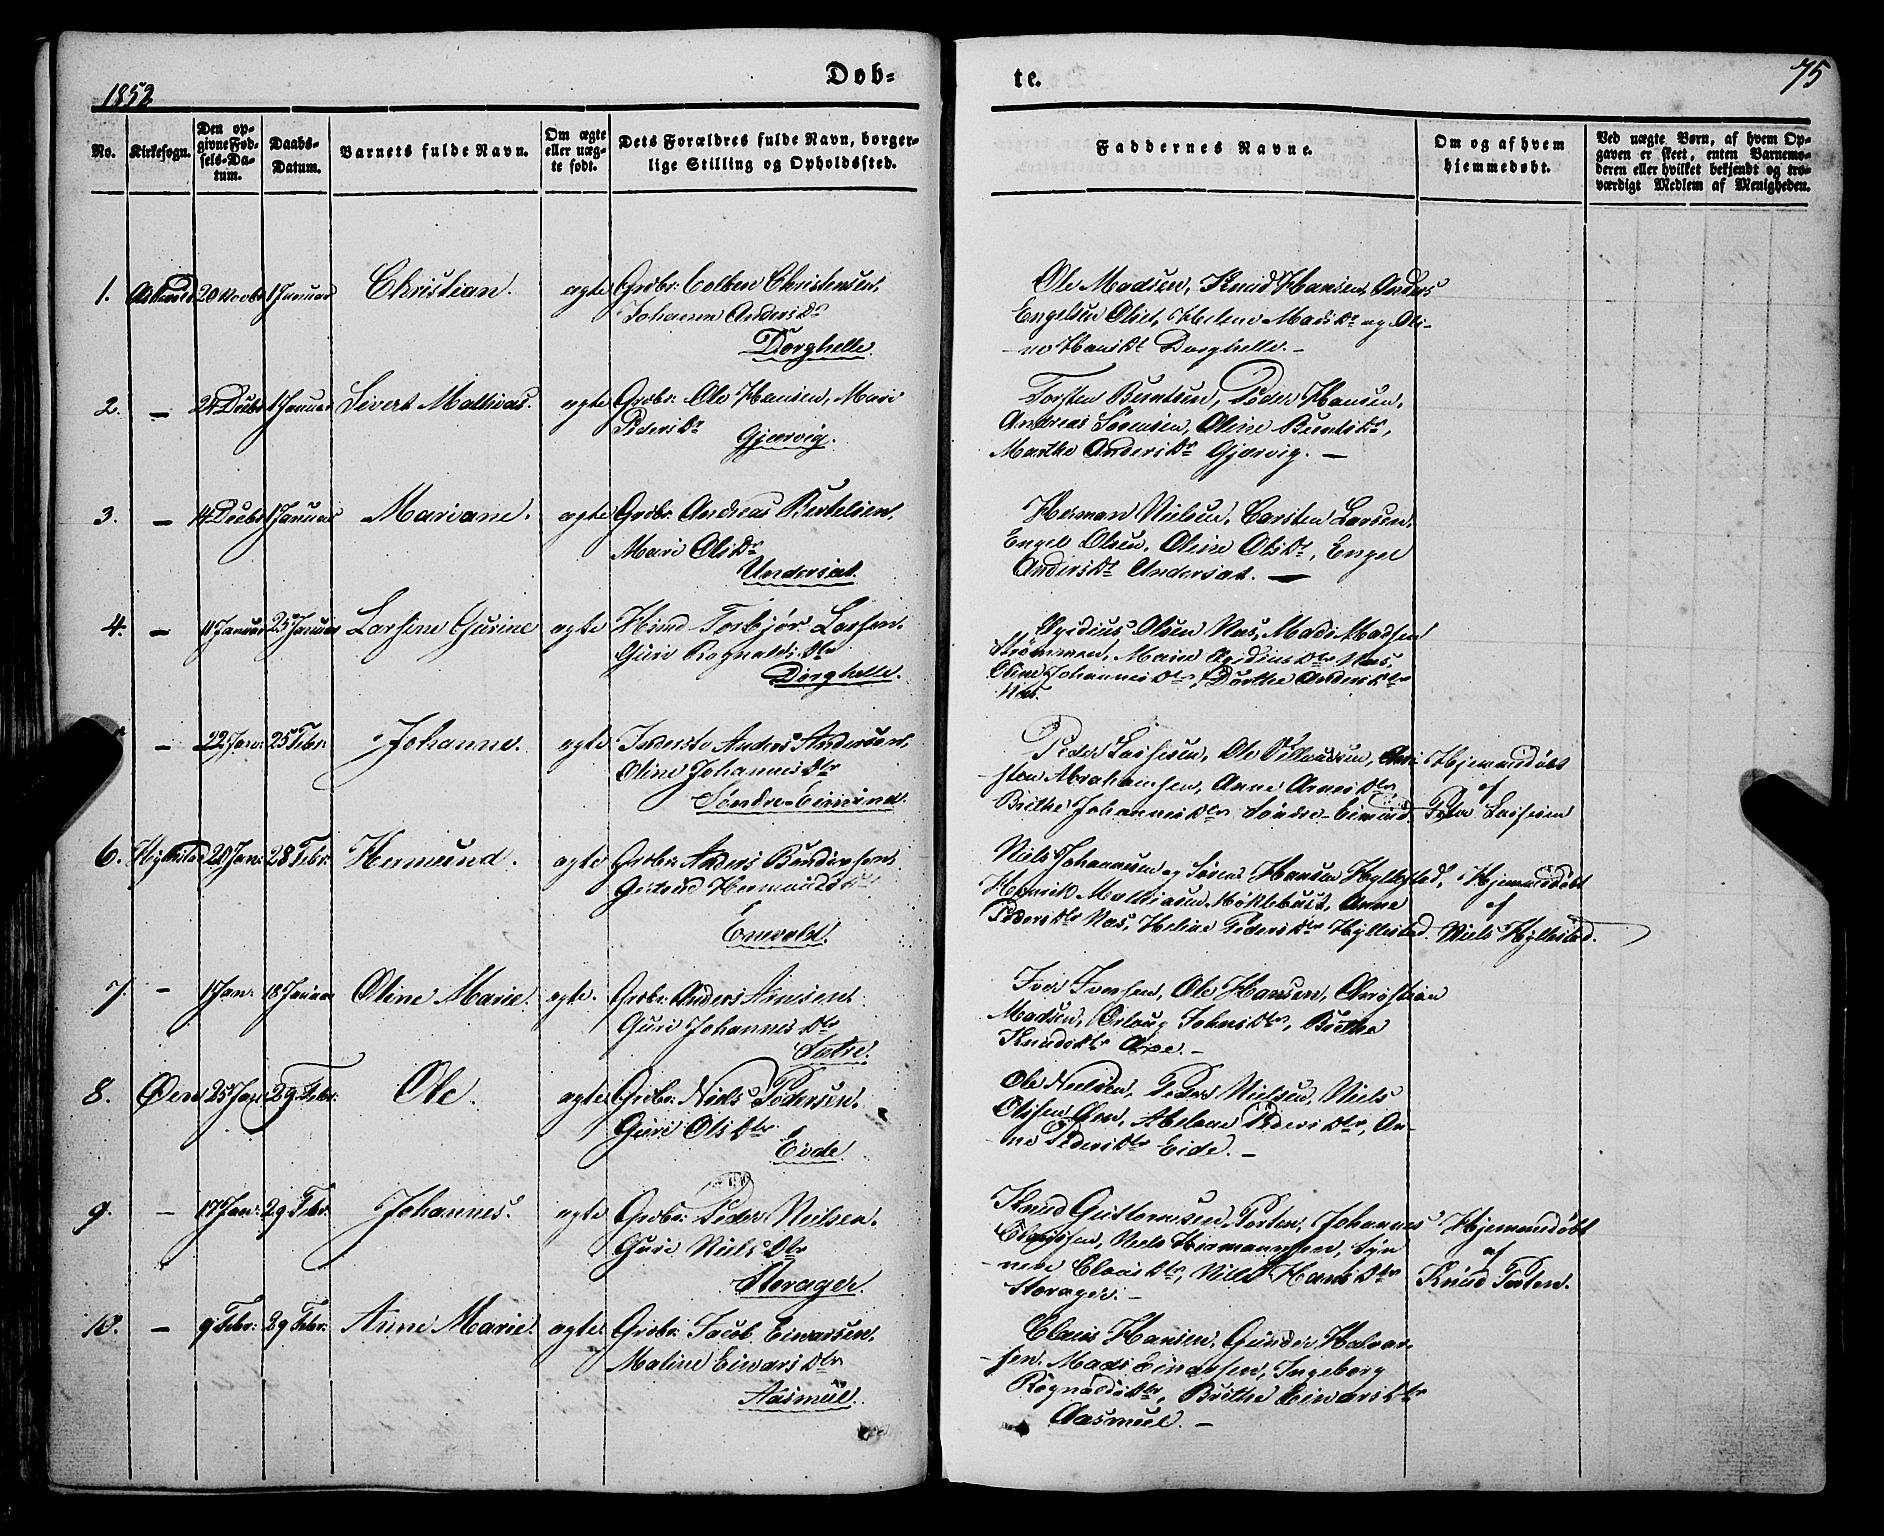 1852
Dob-
te.
75
No. Kirkesogn. Den opgivne Fødsels-Datum. Daabs-Datum. Barnets fulde Navn. Om ægte eller uægte født. Dets Forældres fulde Navn, borgerlige Stilling og Opholdssted.
Faddernes Navne. Om og af hvem hjemmedøbt. Ved uægte Børn, af hvem Opgaven er skeet, enten Barnemoderen eller hvilket bekjendt og troværdigt Medlem af Menigheden.
1. 20 Novbr 1 Januar Christian. ægte Grdbr: Colben Christensen,
Johanne Andersdr
Dørghelle.
Ole Madsen, Knud Hansen, Anders
Engelsen Olset, Helene Madsdr og Oli-
ne Hansdr Dørghelle. -
2. - 24 Decbr 1 Januar Sivert Mathias. ægte Grdbr: Ole Hansen, Mari
Pedersdr Gjærvig.
Torsten Berntsen, Peder Hansen,
Andreas Sørensen, Oline Berntsdr,
Marthe Andersdr Gjærvig. -
3. - 14 Decbr 1 Januar Mariane. ægte Grdbr: Andreas Bertelsen,
Mari Olsdr
Undersæt.
Herman Nielsen, Carsten Larsen,
Engel Olsen, Oline Olsdr, Engel
Andersdr Undersæt. -
4. - 11 Januar 25 Januar Larsine Gurine ægte Huusmd Torbjør. Larsen,
Guri Rognaldsdtr
Dørghelle.
Olsen Næs, Mads Madsen
Strømmen, Marie Næs,
Oline Johannesdtr, Dorthe Andersdtr
Næs.
- 22 Jan: 25 Febr: Johanne. ægte Inderste Anders Andersen,
Oline Johannesdtr
Søndre-Eimind.
Peder Lassesen, Ole Villumsen, Chri-
sten Abrahamsen, Anne Arnesdtr
Brithe Johannesdtr Søndre-Eimind.
Hjemmedøbt
af
Peder Lassesen
6. Hyllestad 20 Jan: 28 Febr: Hermund. ægte Grdbr: Anders Bendixsen,
Gertrud Hermundsdtr
Eenvold.
Niels Johannesen og Søren Hansen Hyllestad,
Henrik Mathiasen Møklebust, Anne
Pedersdtr Næs, Heline Pedersdtr Hyllestad.
Hjemmedøbt
af
Niels Hyllestad.
7. - 1 Jan: 18 Januar Oline Marie. ægte. Grdbr: Anders Arnesen,
Guri Johannesdtr
Sætre.
Iver Iversen, Ole Hansen, Christian
Madsen, Orlaug Johnsdtr, Brithe
Knudsdtr
8. Øen 25 Jan: 29 Febr: Ole. ægte Grdbr: Niels Pedersen,
Guri Olsdtr
Eide.
Ole Nielsen, Peder Nielsen, Niels
Olssen Øen, Abelone Pedersdtr, An-
ne Pedersdtr Eide. -
9. - 17 Jan: 29 Febr: Johannes. ægte Grdbr: Peder Nielsen.
Guri Nielsdtr
Storager.
Knud Guttormsen Porten, Johannes
Niels Hermanssen, Syn
neve Clausdtr, Hansdtr
Storager. -
Hjemmedøbt
af
Knud Porten.
10. - 9 Febr: 29 Febr: Anne Marie. ægte Grdbr: Jacob Eivarsen,
Maline Eivarsdtr
Aasmul.
Claus Hansen, Gunder Halvar-
sen, Mads Einarsen, Ingeborg
Rognaldsdtr, Brithe Eivarsdtr
Aasmul. -